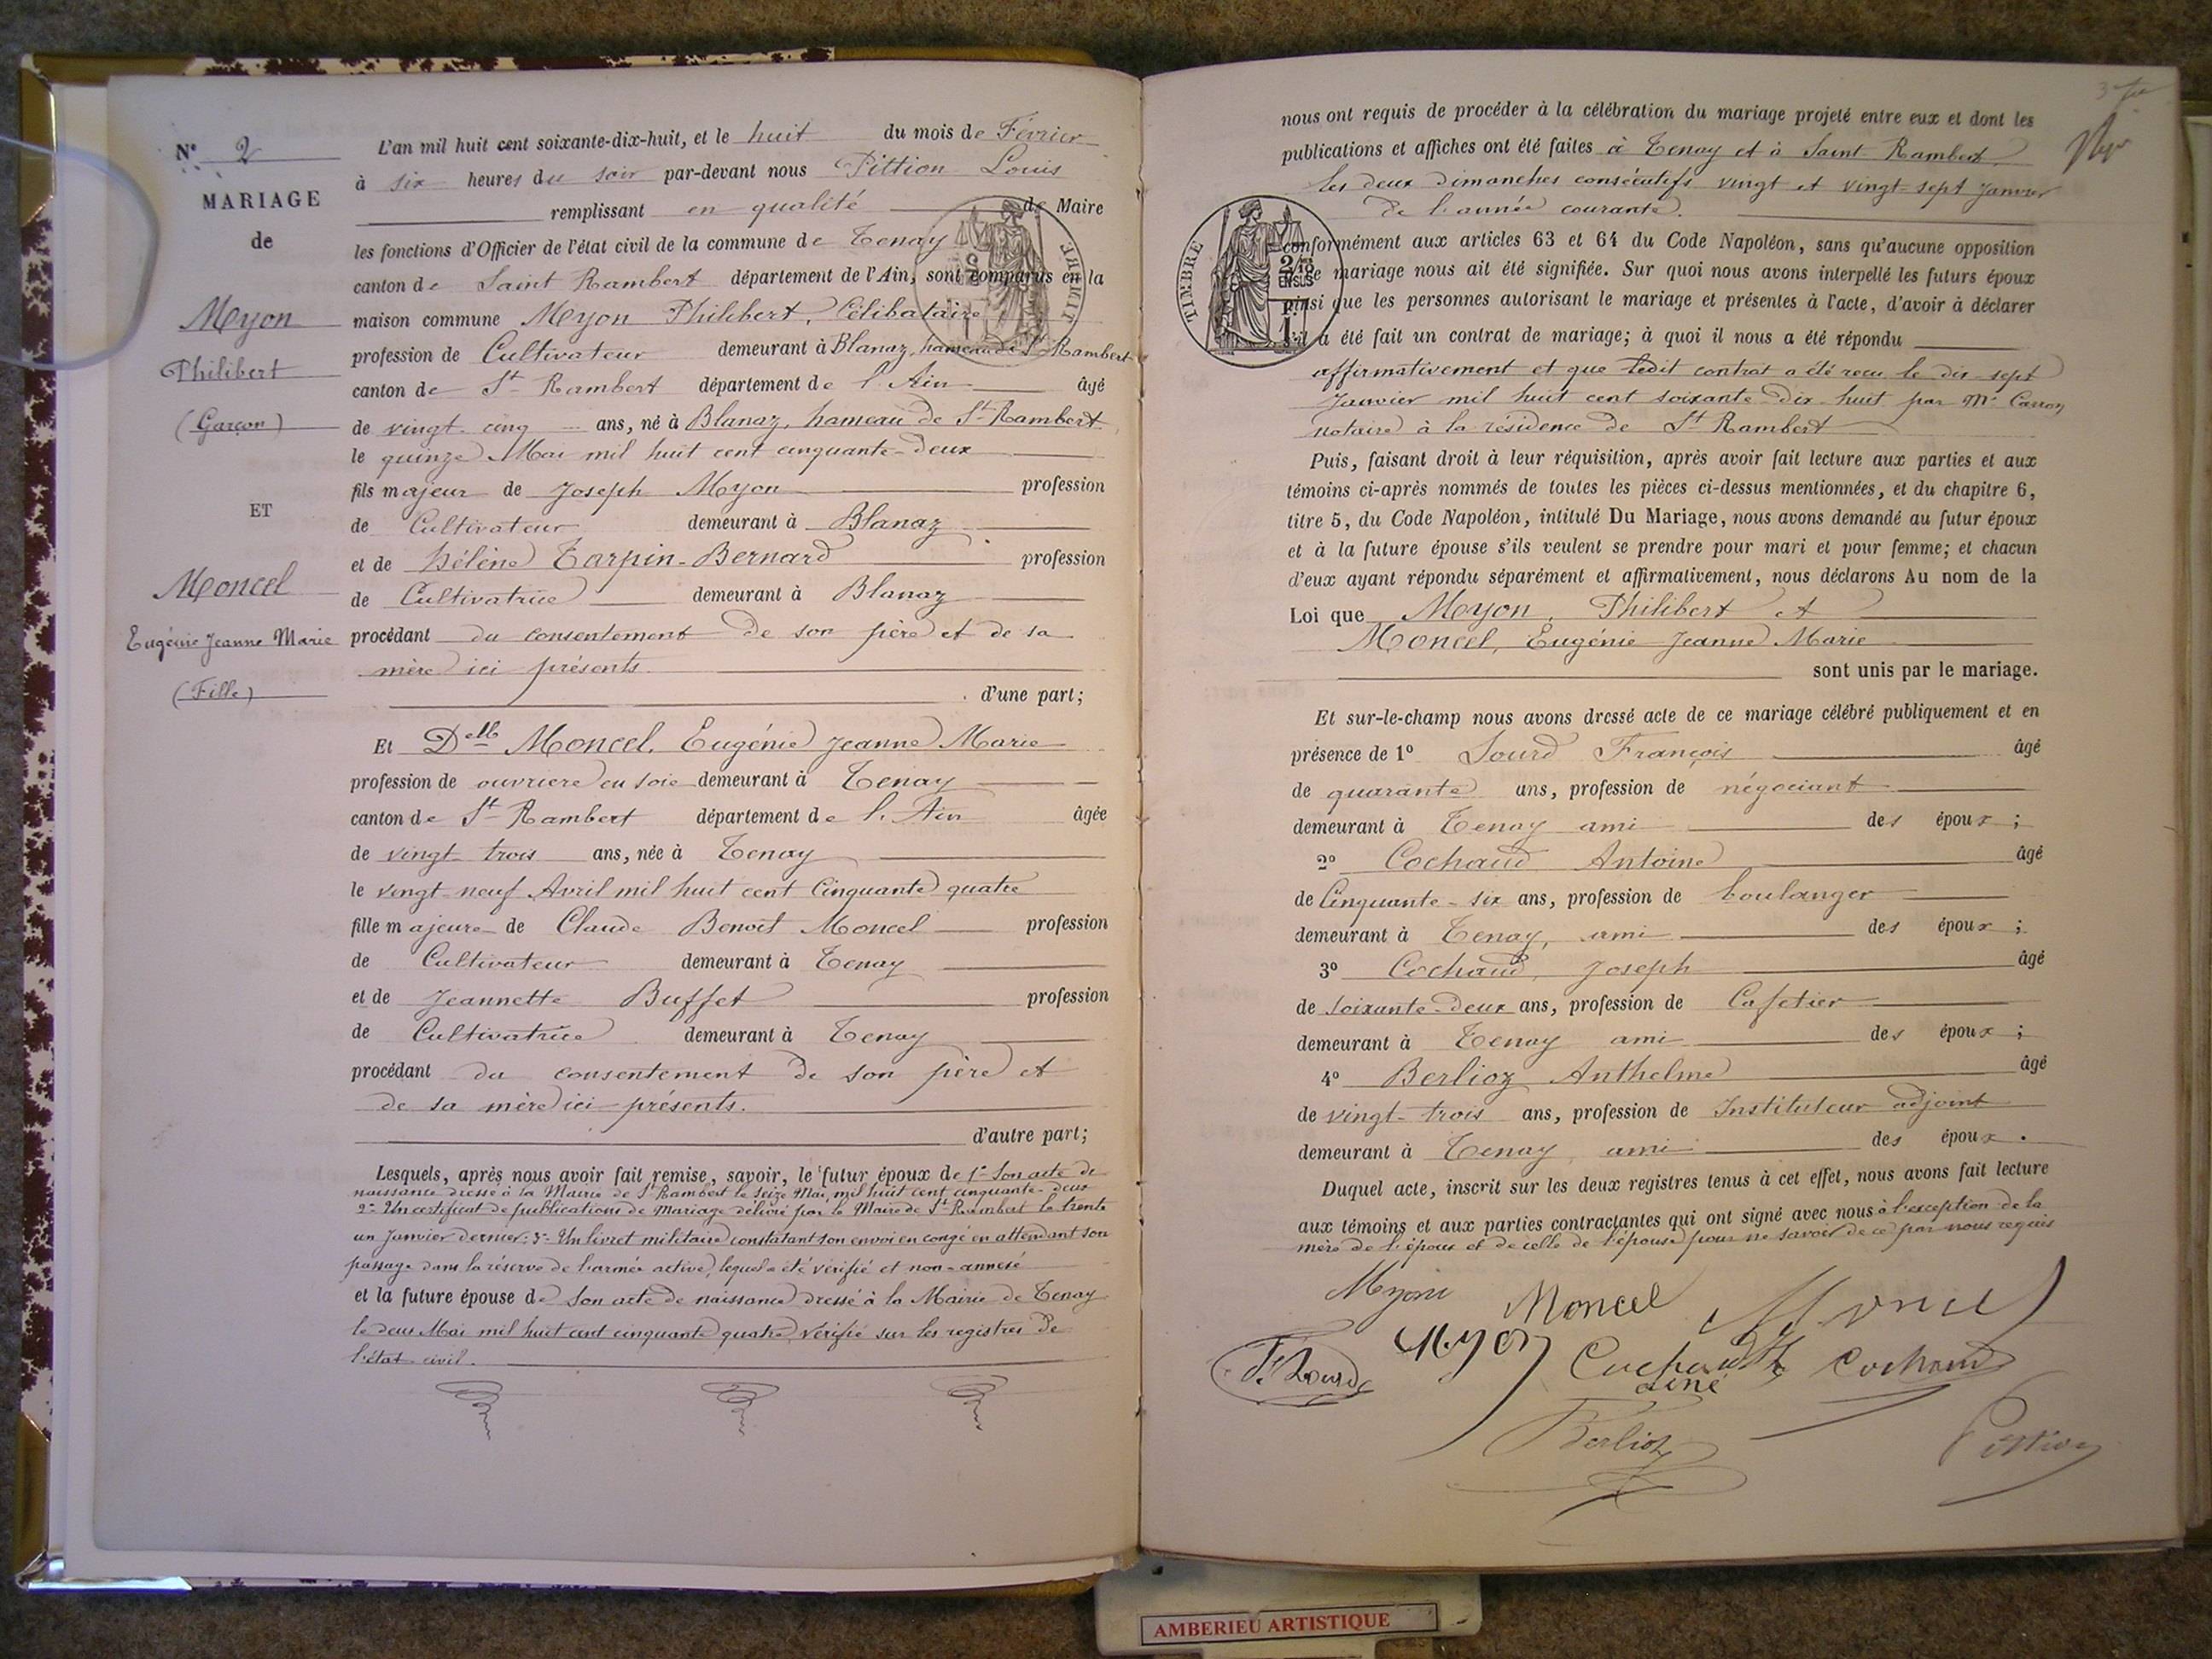 N° 2
MARIAGE
de
Myon
Philibert
(Garçon)
ET
Moncel
Eugénie Jeanne Marie
(Fille)
L'an mil huit cent soixante-dix-huit, et le huit du mois de Février
à six heures du soir par-devant nous Pittion Louis
remplissant en qualité de Maire
les fonctions d'Officier de l'état civil de la commune de Tenay
canton de Saint Rambert département de l'Ain, sont comparus en la
maison commune Myon Philibert, Célibataire
profession de Cultivateur demeurant à Blanaz, hameau de St Rambert
canton de St Rambert département de l'Ain âgé
de vingt-cinq ans, né à Blanaz, hameau de St Rambert
le quinze Mai mil huit cent cinquante-deux
fils majeur de Joseph Myon profession
de Cultivateur demeurant à Blanaz
et de Hélène Tarpin-Bernard profession
de Cultivatrice demeurant à Blanaz
procédant du consentement de son père et de sa
mère ici présents
d'une part;
Et Delle Moncel, Eugénie Jeanne Marie
profession de ouvriere en soie demeurant à Tenay
canton de St Rambert département de l'Ain âgée
de vingt trois ans, née à Tenay
le vingt neuf Avril mil huit cent Cinquante quatre
fille majeure de Claude Benoit Moncel profession
de Cultivateur demeurant à Tenay
et de Jeannette Buffet profession
de Cultivatrice demeurant à Tenay
procédant du consentement de son père et
de sa mère ici présents.
d'autre part;
Lesquels, après nous avoir fait remise, savoir, le futur époux de 1° Son acte de
naissance dressé à la Mairie de St Rambert le seize Mai, mil huit cent cinquante-deux
2° Un certificat de publications de Mariage délivré par le Maire de St Rambert le trente
un Janvier dernier: 3° Un livret militaire constatant son envoi en congé en attendant son
passage dans la réserve de l'armée active, lequel a été vérifié et non-annexé
et la future épouse de Son acte de naissance dressé à la Mairie de Tenay
le deux Mai mil huit cent cinquante quatre, Vérifié sur les registres de
l'état civil.
nous ont requis de procéder à la célébration du mariage projeté entre eux et dont les
publications et affiches ont été faites à Tenay et à Saint-Rambert,
les deux Dimanches consécutifs vingt et vingt-sept Janvier
de l'année courante.
TIMBRE
2/10
EN SUS
conformément aux articles 63 et 64 du Code Napoléon, sans qu'aucune opposition
mariage nous ait été signifiée. Sur quoi nous avons interpellé les futurs époux
ainsi que les personnes autorisant le mariage et présentes à l'acte, d'avoir à déclarer
s'il a été fait un contrat de mariage; à quoi il nous a été répondu
affirmativement et que ledit contrat a été reçu le dix-sept
Janvier mil huit cent soixante dix-huit par Me
notaire à la résidence de St Rambert
Puis, faisant droit à leur réquisition, après avoir fait lecture aux parties et aux
témoins ci-après nommés de toutes les pièces ci-dessus mentionnées, et du chapitre 6,
titre 5, du Code Napoléon, intitulé Du Mariage, nous avons demandé au futur époux
et à la future épouse s'ils veulent se prendre pour mari et pour femme; et chacun
d'eux ayant répondu séparément et affirmativement, nous déclarons Au nom de la
Loi que Myon, Philibert et
Moncel, Eugénie Jeanne Marie
sont unis par le mariage.
Et sur-le-champ nous avons dressé acte de ce mariage célébré publiquement et en
présence de 1° Sourd François âgé
de quarante ans, profession de négociant
demeurant à Tenay ami des époux;
2° Cochaud Antoine âgé
de Cinquante-six ans, profession de boulanger
demeurant à Tenay, ami des époux;
3° Cochaud, Joseph âgé
de soixante-deux ans, profession de Cafetier
demeurant à Tenay ami des époux;
4° Berlioz Anthelme âgé
de vingt-trois ans, profession de Instituteur adjoint
demeurant à Tenay ami des époux.
Duquel acte, inscrit sur les deux registres tenus à cet effet, nous avons fait lecture
aux témoins et aux parties contractantes qui ont signé avec nous à l'exception de la
mère de l'époux et de celle de l'épouse pour ne savoir de ce par nous requis
Myon Moncel Moncel
Fs Sourd Myon Cochaud Cochaud
ainé
Berlioz Pittion
AMBERIEU ARTISTIQUE